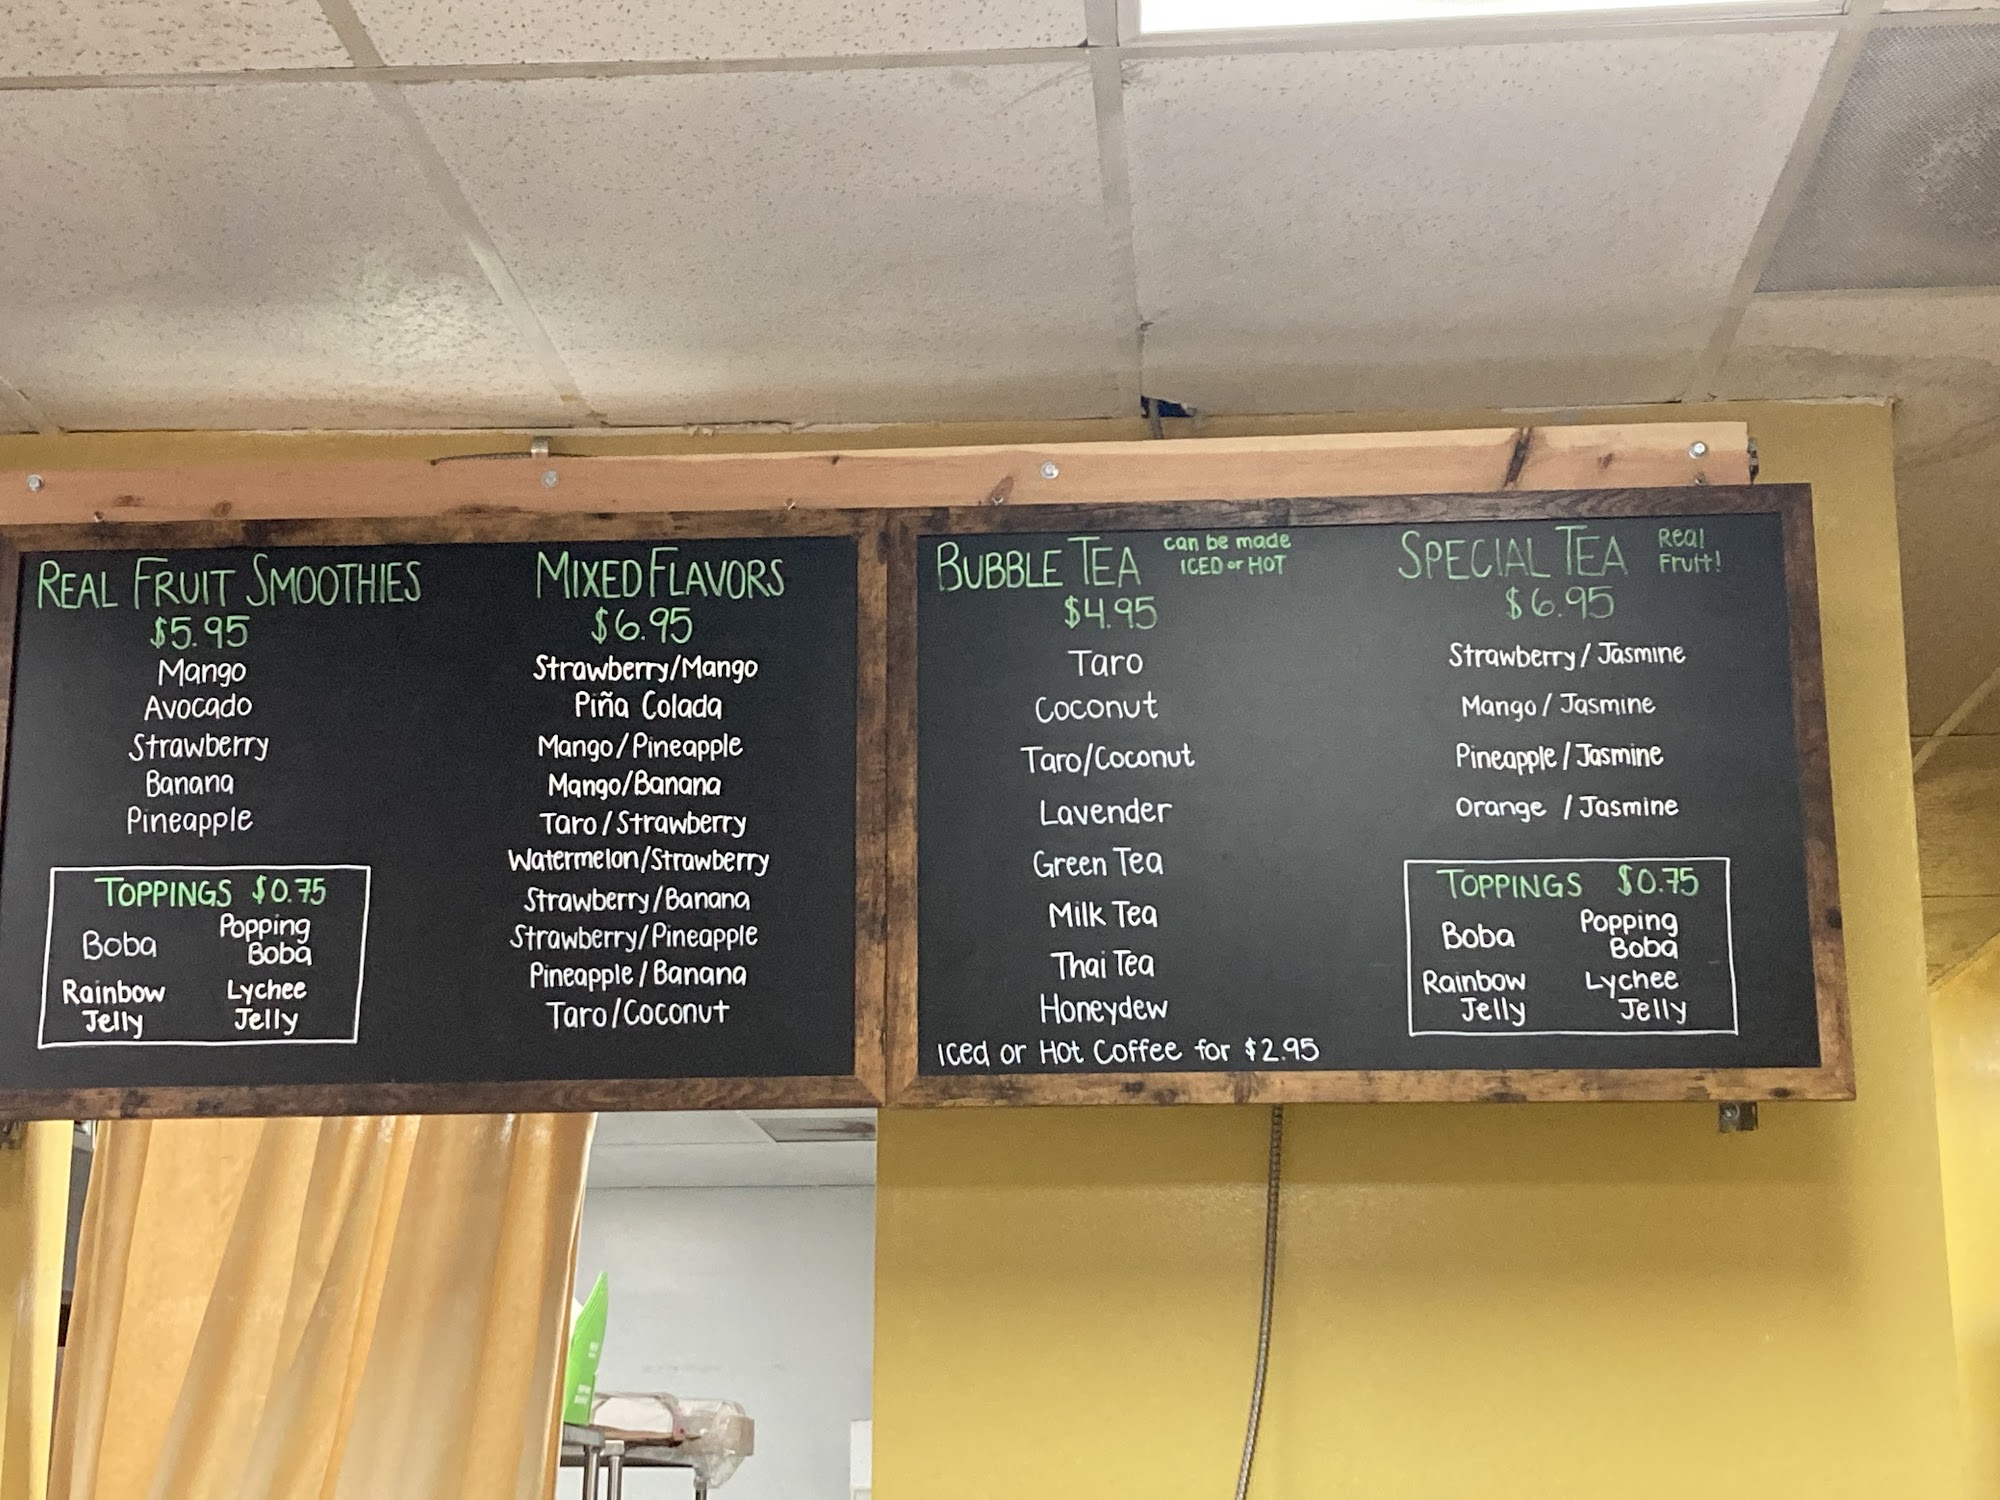 REAL FRUIT SMOOTHIES
$5.95
Mango
Avocado
Strawberry
Banana
Pineapple
TOPPINGS $0.75
Boba
Popping
Boba
Rainbow
Jelly
Lychee
Jelly
MIXED FLAVORS
$6.95
Strawberry/Mango
Piña Colada
Mango/Pineapple
Mango/Banana
Taro/Strawberry
Watermelon/Strawberry
Strawberry/Banana
Strawberry/Pineapple
Pineapple/Banana
Taro/Coconut
BUBBLE TEA
can be made
ICED or HOT
$4.95
Taro
Coconut
Taro/Coconut
Lavender
Green Tea
Milk Tea
Thai Tea
Honeydew
Iced or Hot Coffee for $2.95
SPECIAL TEA
Real
Fruit!
$6.95
Strawberry/Jasmine
Mango/Jasmine
Pineapple/Jasmine
Orange /Jasmine
TOPPINGS $0.75
Boba
Popping
Boba
Rainbow
Jelly
Lychee
Jelly